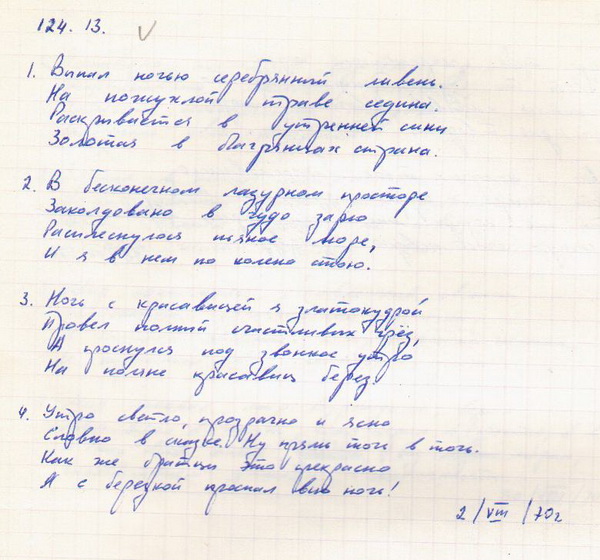 124. 13. V
1. Выпал ночью серебрянный ливень.
На пожухлой траве седина.
Раскрывается в утренней сини
Золотая в багрянцах страна.
2. В бесконечном лазурном просторе
Заколдовано в чудо зарю
Расплеснулося пьяное море,
И я в нем по колено стою.
3. Ночь с красавицей я златокудрой
Провел полный счастливых грёз,
А проснулся под звонкое утро
На поляне красавиц берез.
4. Утро светло, прозрачно и ясно
Словно в сказке. Ну прям точь в точь.
Как же братцы это прекрасно
Я с березкой проспал всю ночь!
2 / VIII / 70г